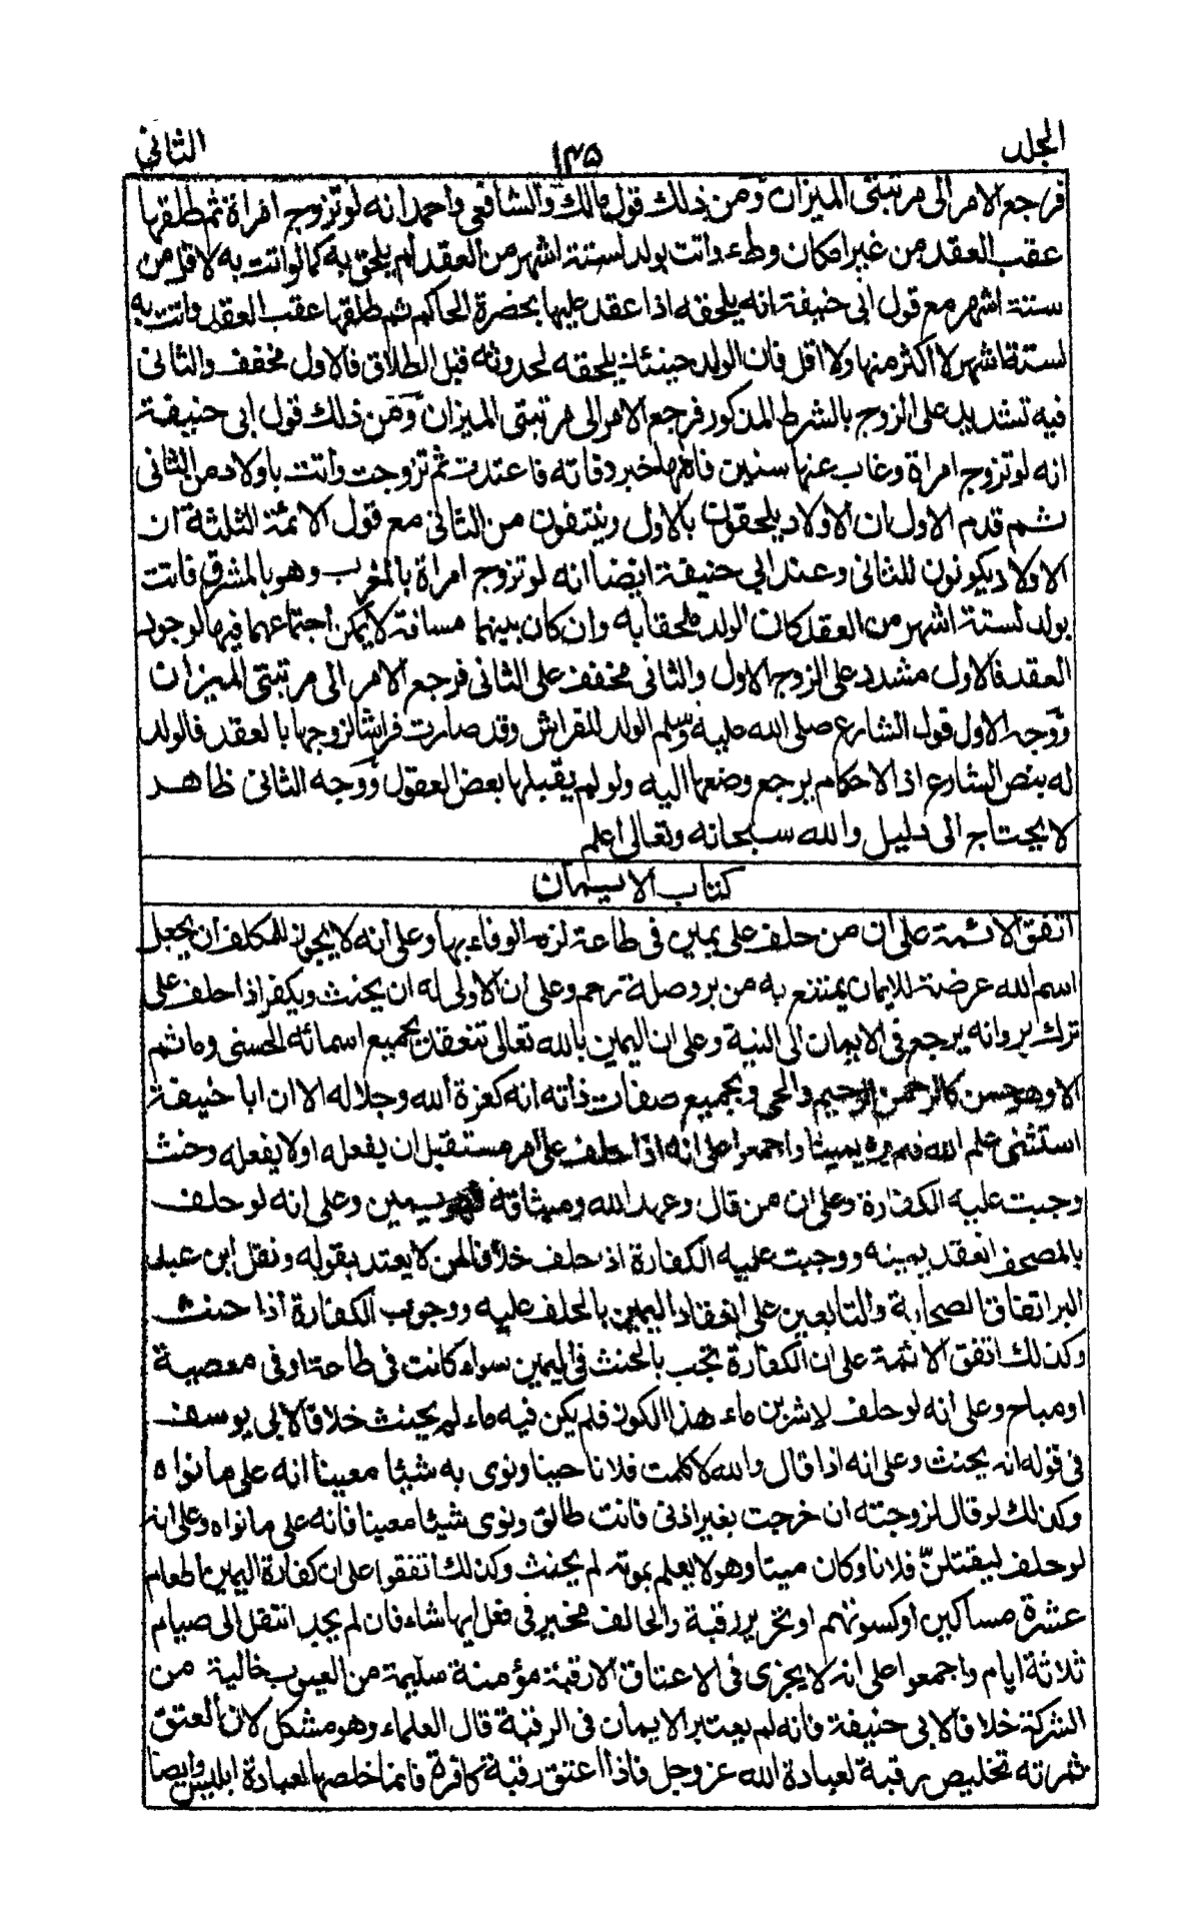 الجلد ١٣٥ الثاني
فرجع الامر الى مرتبتي الميزان ومن ذلك قول مالك والشافعي واحمد انه لو تزوج امراة ثم طلقها
عقب العقد من غير امكان وطء واتت بولد لستة اشهر من العقد لم يلحق به كما لو اتت به لاقل من
ستة اشهر مع قول ابى حنيفة انه يلحقه اذا عقد عليها بحضرة الحاكم ثم طلقها عقب العقد واتت به
لستة اشهر لا اكثر منها ولا اقل فان الولد حينئذ يلحقه لحدوثه قبل الطلاق فالاول مخفف والثانى
فيه تشديد على الزوج بالشرط المذكور فرجع الامر الى مرتبتى الميزان ومن ذلك قول ابى حنيفة
انه لو تزوج امراة وغاب عنها سنين فاتاها خبر وفاته فاعتدت ثم تزوجت واتت باولاد من الثانى
ثم قدم الاول ان الاولاد يلحقون بالاول وينتفون من الثانى مع قول الائمة الثلثة ان
الاولاد يكونون للثانى وعند ابي حنيفة ايضا انه لو تزوج امراة بالمغرب وهو بالمشرق فاتت
بولد لستة اشهر من العقد كان الولد ملحقا به وان كان بينهما مسافة لا يمكن اجتماعهما فيها لوجود
العقد فالاول مشدد على الزوج الاول والثانى مخفف على الثانى فرجع الامر الى مرتبتى الميزان
ووجه الاول قول الشارع صلى الله عليه وسلم الولد للفراش وقد صارت فراشا لزوجها بالعقد فالولد
له بنص الشارع اذ الاحكام يرجع وضعها اليه ولو لم يقبلها بعض العقول ووجه الثانى ظاهر
لا يحتاج الى دليل والله سبحانه وتعالى اعلم
كتاب الايمان
اتفق الائمة على ان من حلف على يمين فى طاعة لزمه الوفاء بها وعلى انه لا يجوز للمكلف ان يجعل
اسم الله عرضة للايمان يمتنع به من بر وصلة ترحم وعلى ان الاولى له ان يحنث ويكفر اذا حلف على
ترك بر وانه يرجع فى الايمان الى النية وعلى ان اليمين بالله تعالى تنعقد بجميع اسمائه الحسنى وما ثم
الا وهو حسن كالرحمن الرحيم والحى وبجميع صفات ذاته انه كعزة الله وجلاله الا ان ابا حنيفة
استثنى علم الله فلم يره يمينا واجمعوا على انه اذا حلف على امر مستقبل ان يفعله او لا يفعله وحنث
وجبت عليه الكفارة وعلى ان من قال وعهد الله وميثاقه فهو يمين وعلى انه لو حلف
بالمصحف انعقد يمينه ووجبت عليه الكفارة اذ حلف خلافا لمن لا يعتد بقوله ونقل ابن عبد
البر اتفاق الصحابة والتابعين على انعقاد اليمين بالحلف عليه ووجوب الكفارة اذا حنث
وكذلك اتفق الائمة على ان الكفارة تجب بالحنث فى اليمين سواء كانت فى طاعة او فى معصية
او مباح وعلى انه لو حلف لاشربن ماء هذا الكوز فلم يكن فيه ماء لم يحنث خلافا لابى يوسف
فى قوله انه يحنث وعلى انه اذا قال والله لا كلمت فلانا حينا ونوى به شيئا معينا انه على ما نواه
وكذلك لو قال لزوجته ان خرجت بغير اذنى فانت طالق ونوى شيئا معينا فانه على ما نواه وعلى انه
لو حلف ليقتلن فلانا وكان ميتا وهو لا يعلم بموته لم يحنث وكذلك اتفقوا على ان كفارة اليمين اطعام
عشرة مساكين او كسوتهم او تحرير رقبة والحالف مخير فى فعل ايها شاء فان لم يجد انتقل الى صيام
ثلاثة ايام واجمعوا على انه لا يجزى فى الاعتاق الا رقبة مؤمنة سليمة من العيوب خالية من
الشركة خلافا لابى حنيفة فانه لم يعتبر الايمان فى الرقبة قال العلماء وهو مشكل لان العتق
ثمرته تخليص رقبة لعبادة الله عز وجل فاذا اعتق رقبة كافرة فانما خلصها لعبادة ابليس وايضا